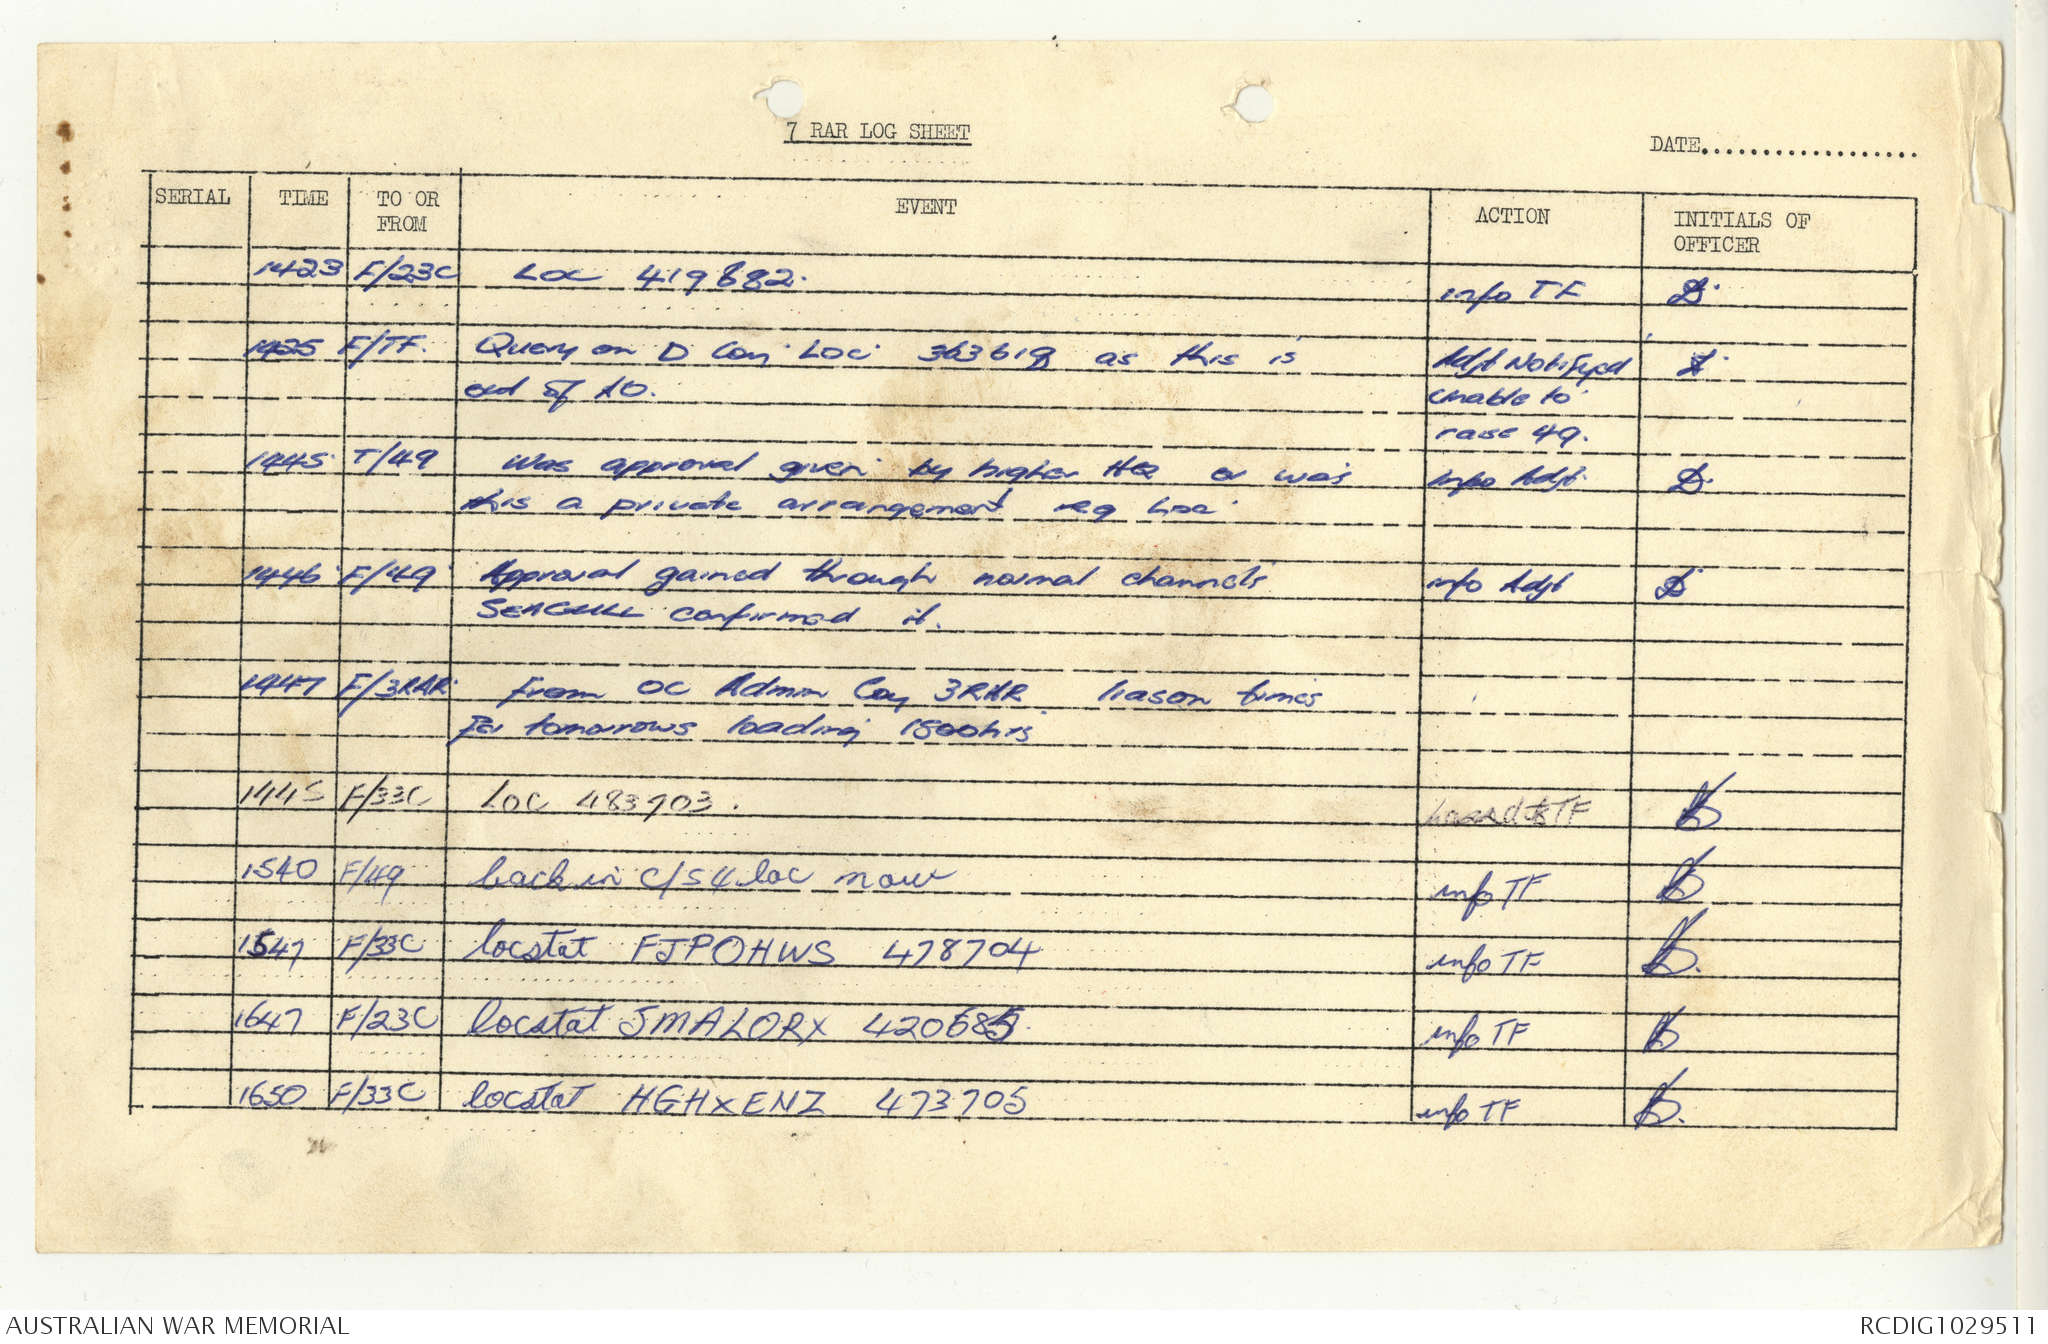 7 RAR LOG SHEET
DATE...................
SERIAL TIME TO OR FROM EVENT ACTION INITIALS OF OFFICER
1423 F/23C Loc 419682. info TF
1435 F/TF. Query on D Coy Loc 363619 as this is Adjt Notifyed
out of AO. unable to
raise 49.
1445 T/49 Was approval given by higher HQ or was info Adjt.
this a private arrangement reg Loc
1446 F/49 Approval gained through normal channels info Adjt
SEAGULL confirmed it.
1447 F/3RAR From OC Admin Coy 3RAR liason times
for tomorrows loading 1500hrs
1445 F/33C Loc 483703. to TF
1540 F/49 back in C/S 4 loc now info TF
1547 F/33C locstat FJPOHWS 478704 info TF
1647 F/23C locstat JMALORX info TF
1650 F/33C locstat HGHXENZ 473705 info TF
AUSTRALIAN WAR MEMORIAL
RCDIG1029511